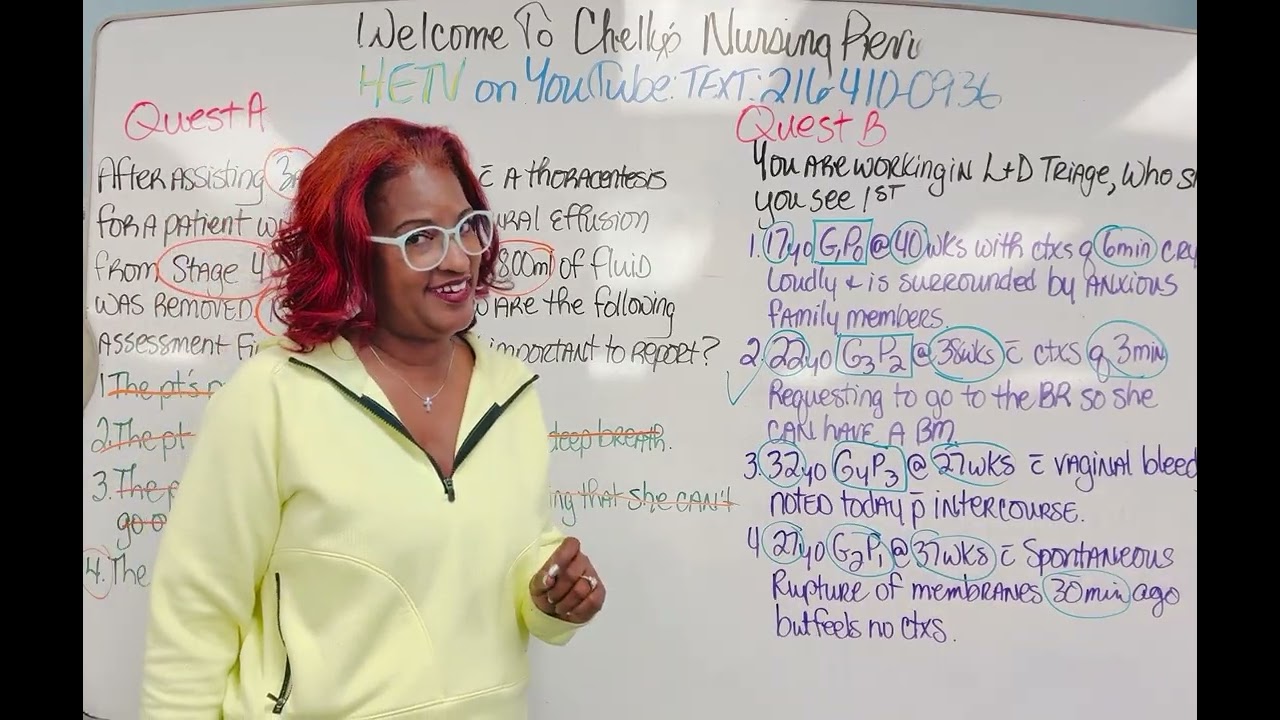 Welcome To Chelly's Nursing
HETV on YouTube: TEXT: 216-410-0936
Quest A
After assisting with c̄ a thoracentesis
for a patient effusion
from Stage 4 800ml of fluid
was removed. are the following
Assessment important to report?
1. The pt's
2. The pt deep breath.
3. The that she can't
go
4. The
Quest B
You are working in L+D Triage, who
you see 1st
1. 17yo G1P0 @ 40wks with ctxs q 6min
Loudly & is surrounded by anxious
family members.
2. 22yo G3P2 @ 38wks c̄ ctxs q 3min
Requesting to go to the BR so she
can have a BM.
3. 32yo G4P3 @ 27wks c̄ vaginal bleed
noted today p̄ intercourse.
4 27yo G2P1 @ 37wks c̄ spontaneous
Rupture of membranes 30min ago
but feels no ctxs.